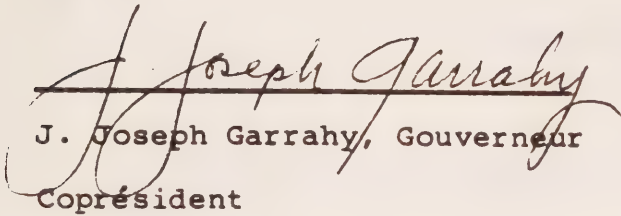 J. Joseph Garrahy
J. Joseph Garrahy, Gouverneur
Coprésident